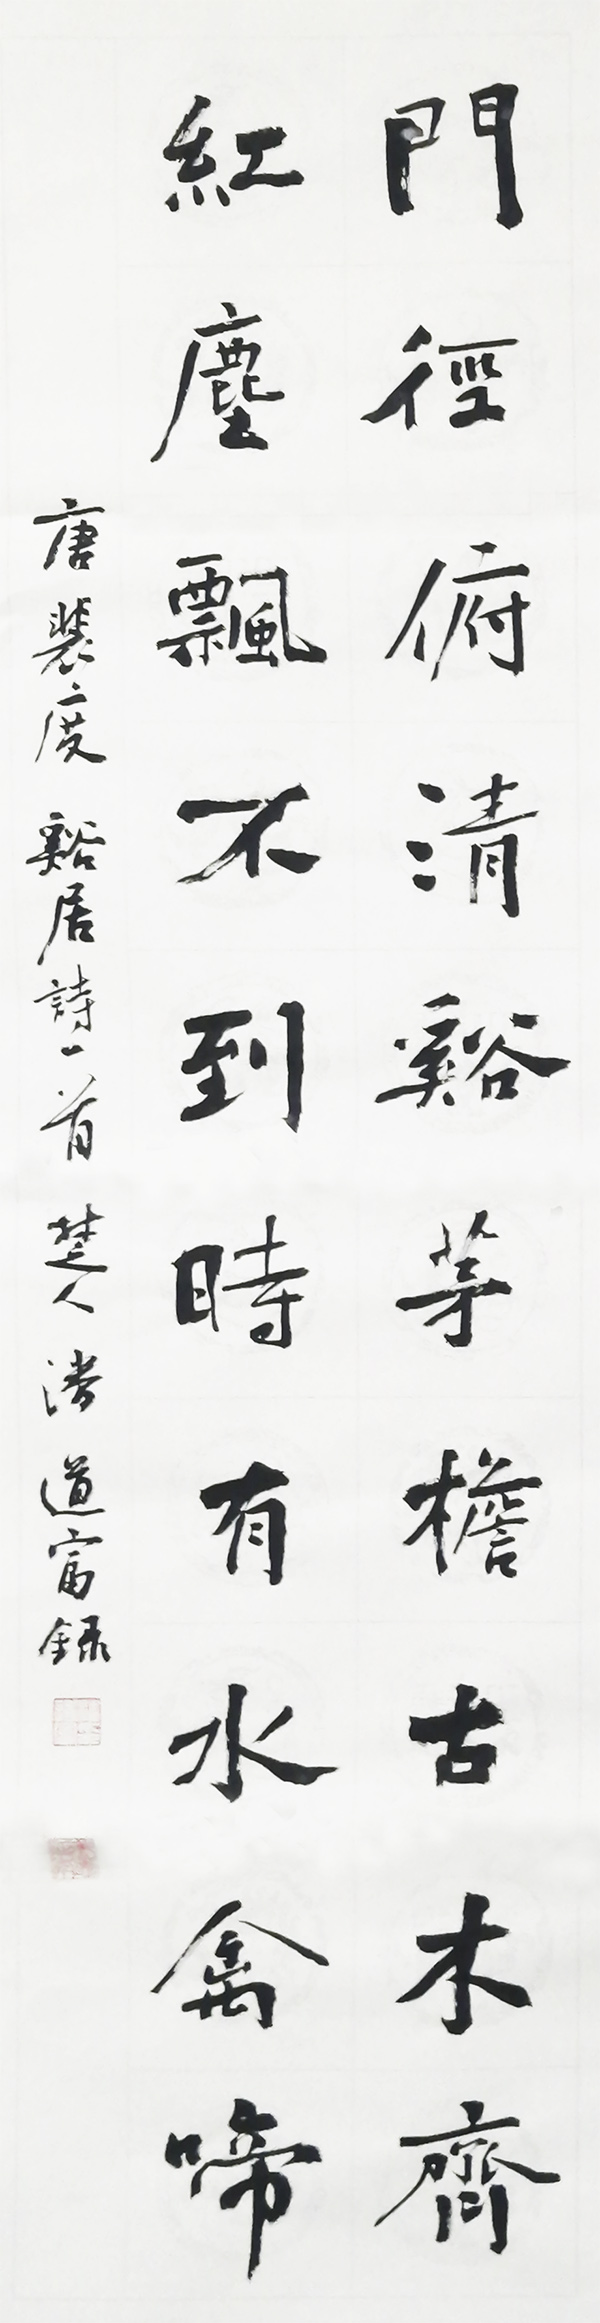 門徑俯清谿茅檐古木齊
紅塵飄不到時有水禽啼
唐裴度谿居詩一首楚人涛道富録